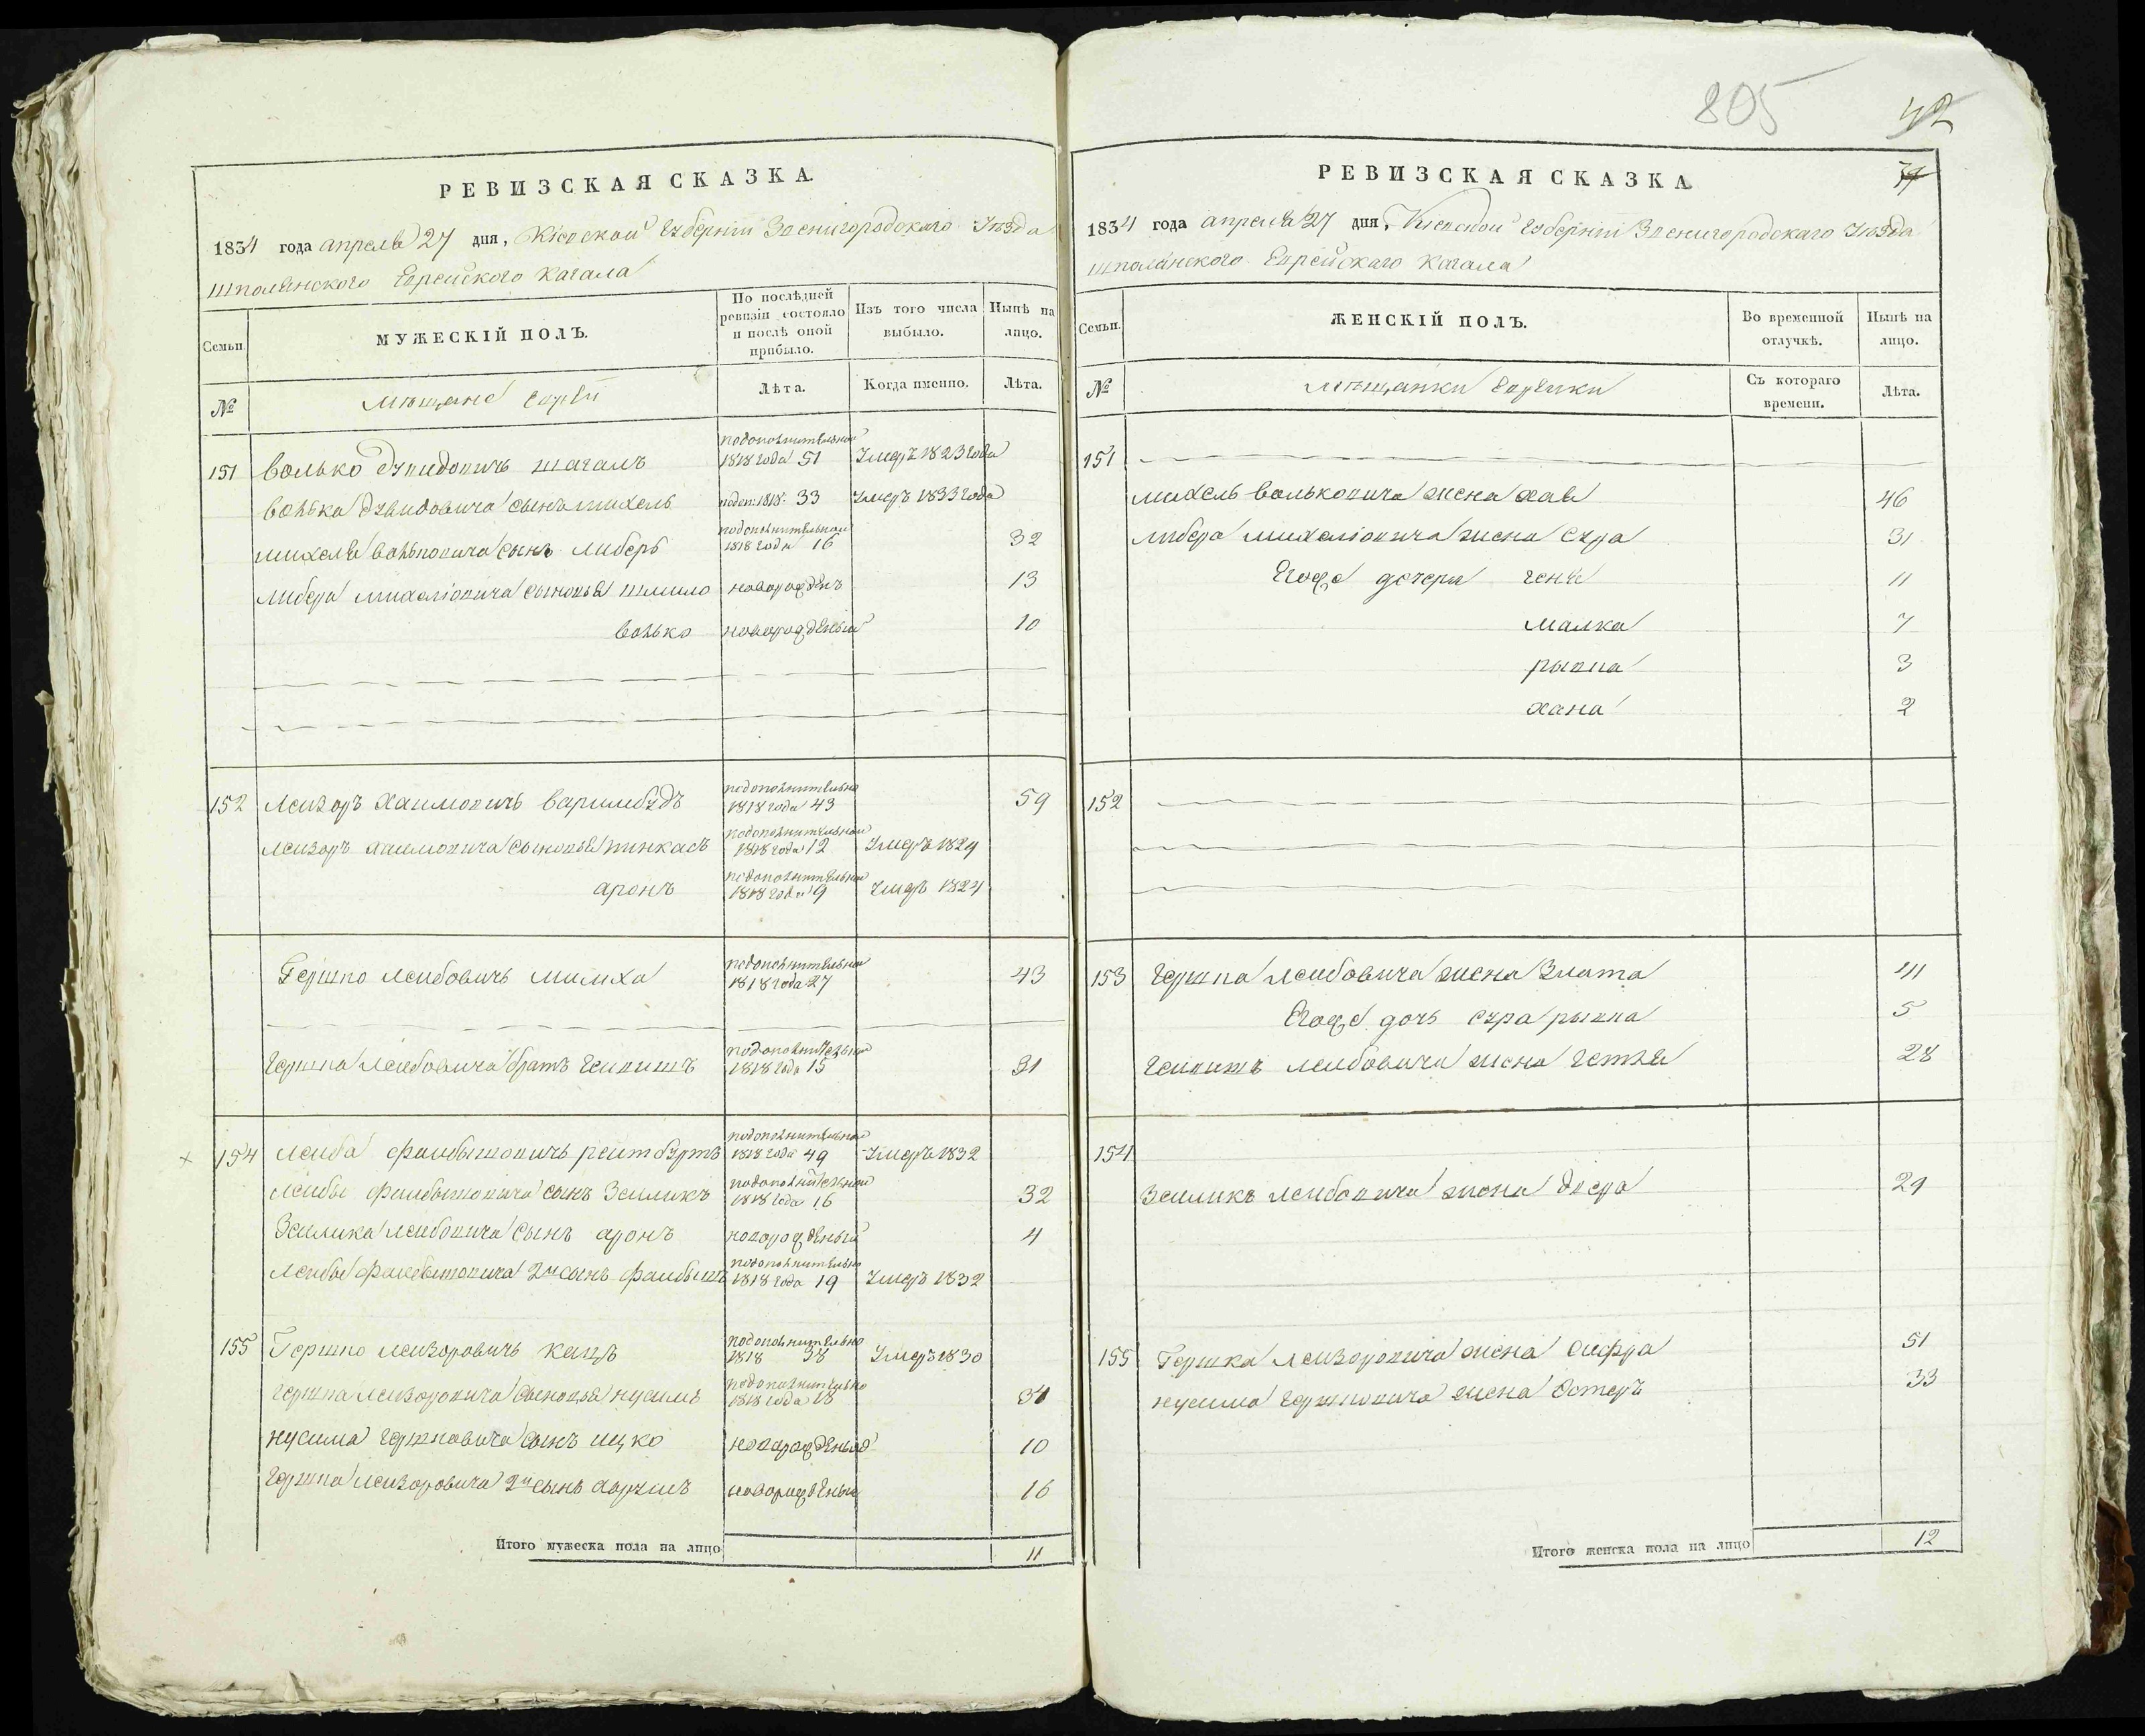 805
42
РЕВИЗСКАЯ СКАЗКА.
1834 года апреля 27 дня, Кіевской Губерніи Звенигородскаго Уезда
шполянского Еврейского кагала
Семьи.
МУЖЕСКІЙ ПОЛЪ.
По послѣдней ревизіи состояло и послѣ оной прибыло.
Изъ того числа выбыло.
Нынѣ на лицо.
№
мещане евреи
Лѣта.
Когда именно.
Лѣта.
151 волько дувидовичъ шагалъ подополнительной 1818 года 51 Умеръ 1823 года
волька дувидовича сынъ михель подоп: 1818: 33 умеръ 1833 года
михеля вольковича сынъ либеръ подополнительной 1818 года 16 32
либера михелювича сыновья шлиомо новорожденъ 13
волько новорожденый 10
152 лейзоръ хаимовичъ варимбудъ подополнительно 1818 года 43 59
лейзоръ хаимовича сыновья пинкасъ подополнительной 1818 года 12 умеръ 1829
аронъ подополнительной 1818 года 9 умеръ 1824
Гершко лейбовичъ милиха подополнительной 1818 года 27 43
гершка лейбовича братъ гейнишъ подополнительной 1818 года 15 31
154 лейба файбышовичъ рейтбуртъ подополнительной 1818 года 49 умеръ 1832
лейбы файбышовича сынъ Зейликъ подополнительной 1818 года 16 32
Зейлика лейбовича сынъ аронъ новорожденый 4
лейбы файбышовича 2й сынъ файбишъ подополнительно 1818 года 19 умеръ 1832
155 Гершко лейзоровичъ кацъ подополнительно 1818 38 умеръ 1830
гершка лейзоровича сыновья нусимъ подополнительно 1818 года 18 34
нусима гершковича сынъ ицко новорожденый 10
гершка лейзоровича 2й сынъ новорожденый 16
Итого мужеска пола на лицо 11
РЕВИЗСКАЯ СКАЗКА.
1834 года апреля 27 дня, Кіевской Губерніи Звенигородскаго Уезда
шполянского Еврейскаго кагала
Семьи.
ЖЕНСКІЙ ПОЛЪ.
Во временной отлучкѣ.
Нынѣ на лицо.
№
мещанки еврейки
Съ котораго времени.
Лѣта.
151
михель вольковича жена хая 46
либера михелювича жена сура 31
Егоже дочери геня 11
малка 7
рывка 3
хана 2
152
153 гершка лейбовича жена Злата 41
Егоже дочь сура рывка 5
гейнишъ лейбовича жена гетья 28
154
Зейликъ лейбовича жена двера 29
155 Гершка лейзоровича жена сифра 51
нусима гершковича жена Эстеръ 33
Итого женска пола на лицо 12